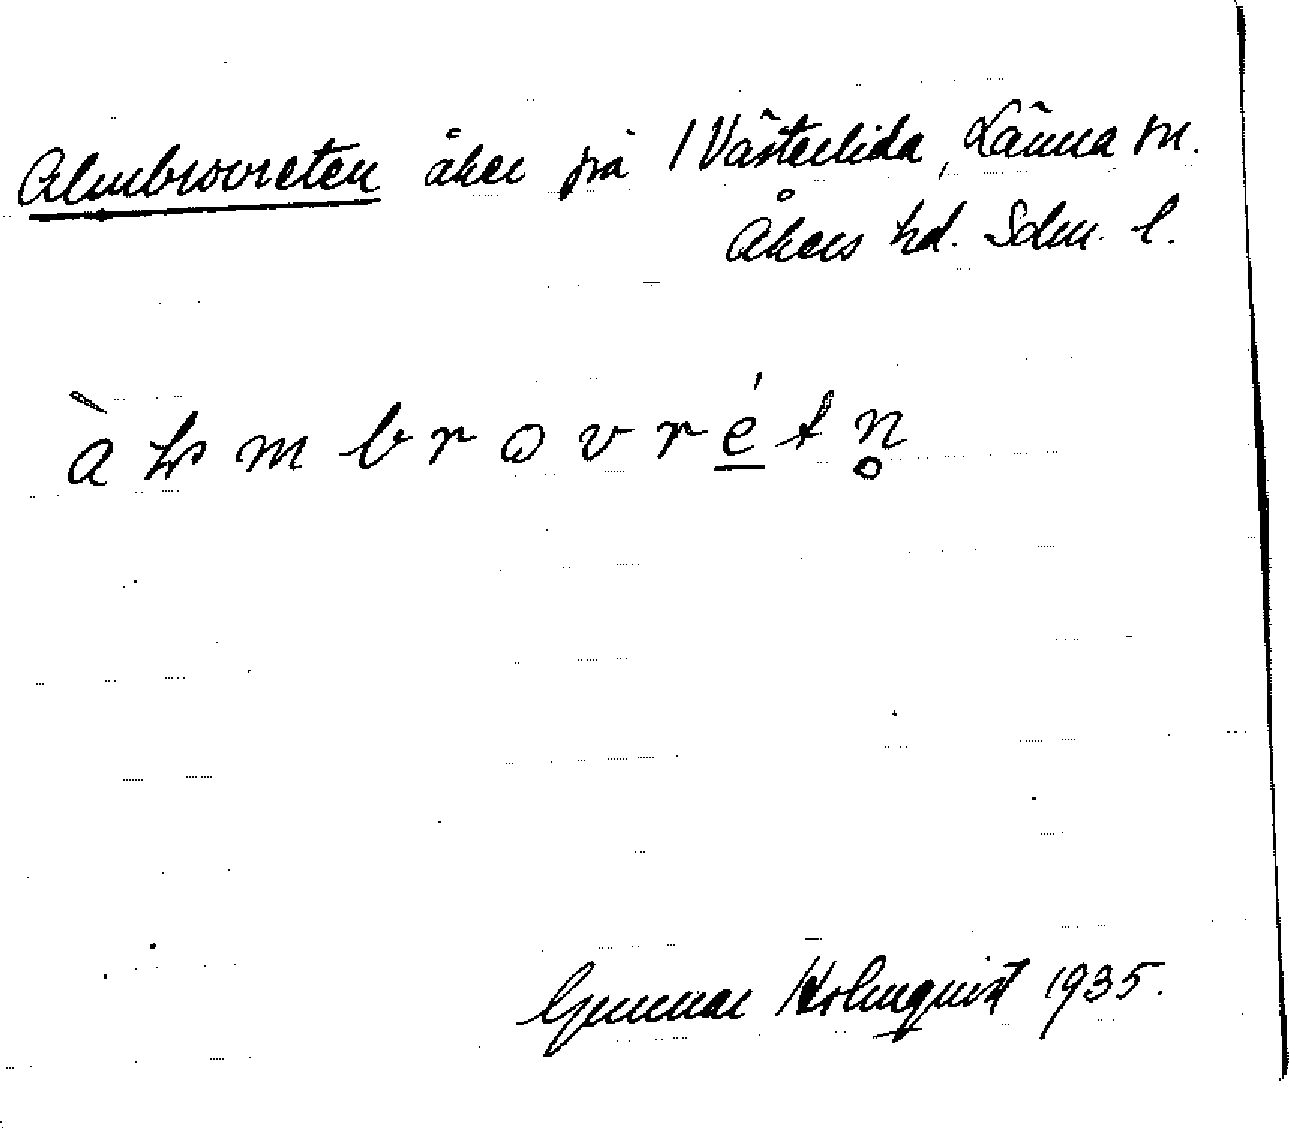 Almbrovreten åker på 1 Västerlida, Länna sn.
Åkers hd. Sdm. l.
àlmbrovrétn̥
Gunnar Holmquist 1935.